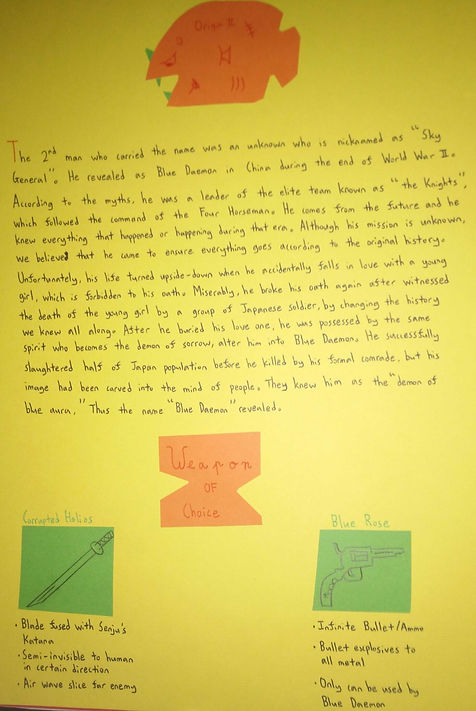 Origin II
The 2nd man who carried the name was an unknown who is nicknamed as "Sky
General". He revealed as Blue Daemon in China during the end of World War II.
According to the myths, he was a leader of the elite team known as "the Knights"
which followed the command of the Four Horseman. He comes from the future and he
knew everything that happened or happening during that era. Although his mission is unknown,
we believed that he came to ensure everything goes according to the original history.
Unfortunately, his life turned upside-down when he accidentally falls in love with a young
girl, which is forbidden to his oath. Miserably, he broke his oath again after witnessed
the death of the young girl by a group of Japanese soldier, by changing the history
we knew all along. After he buried his love one, he was possessed by the same
spirit who becomes the demon of sorrow, alter him into Blue Daemon. He successfully
slaughtered half of Japan population before he killed by his formal comrade, but his
image had been carved into the mind of people. They knew him as the "demon of
blue aura," Thus the name "Blue Daemon" revealed.
Weapon
OF
Choice
Corrupted Helios
• Blade fused with Senju's
Katana
• Semi-invisible to human
in certain direction
• Air wave slice far enemy
Blue Rose
• Infinite Bullet/Ammo
• Bullet explosives to
all metal
• Only can be used by
Blue Daemon